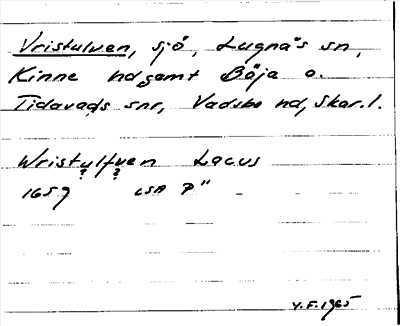 Vristulven, sjö, Lugnås sn,
Kinne hd samt Böja o.
Tidavads snr, Vadsbo hd, Skar. l.
Wristulfven Lacus
? ?
1659 LSA P"
Y.F. 1965